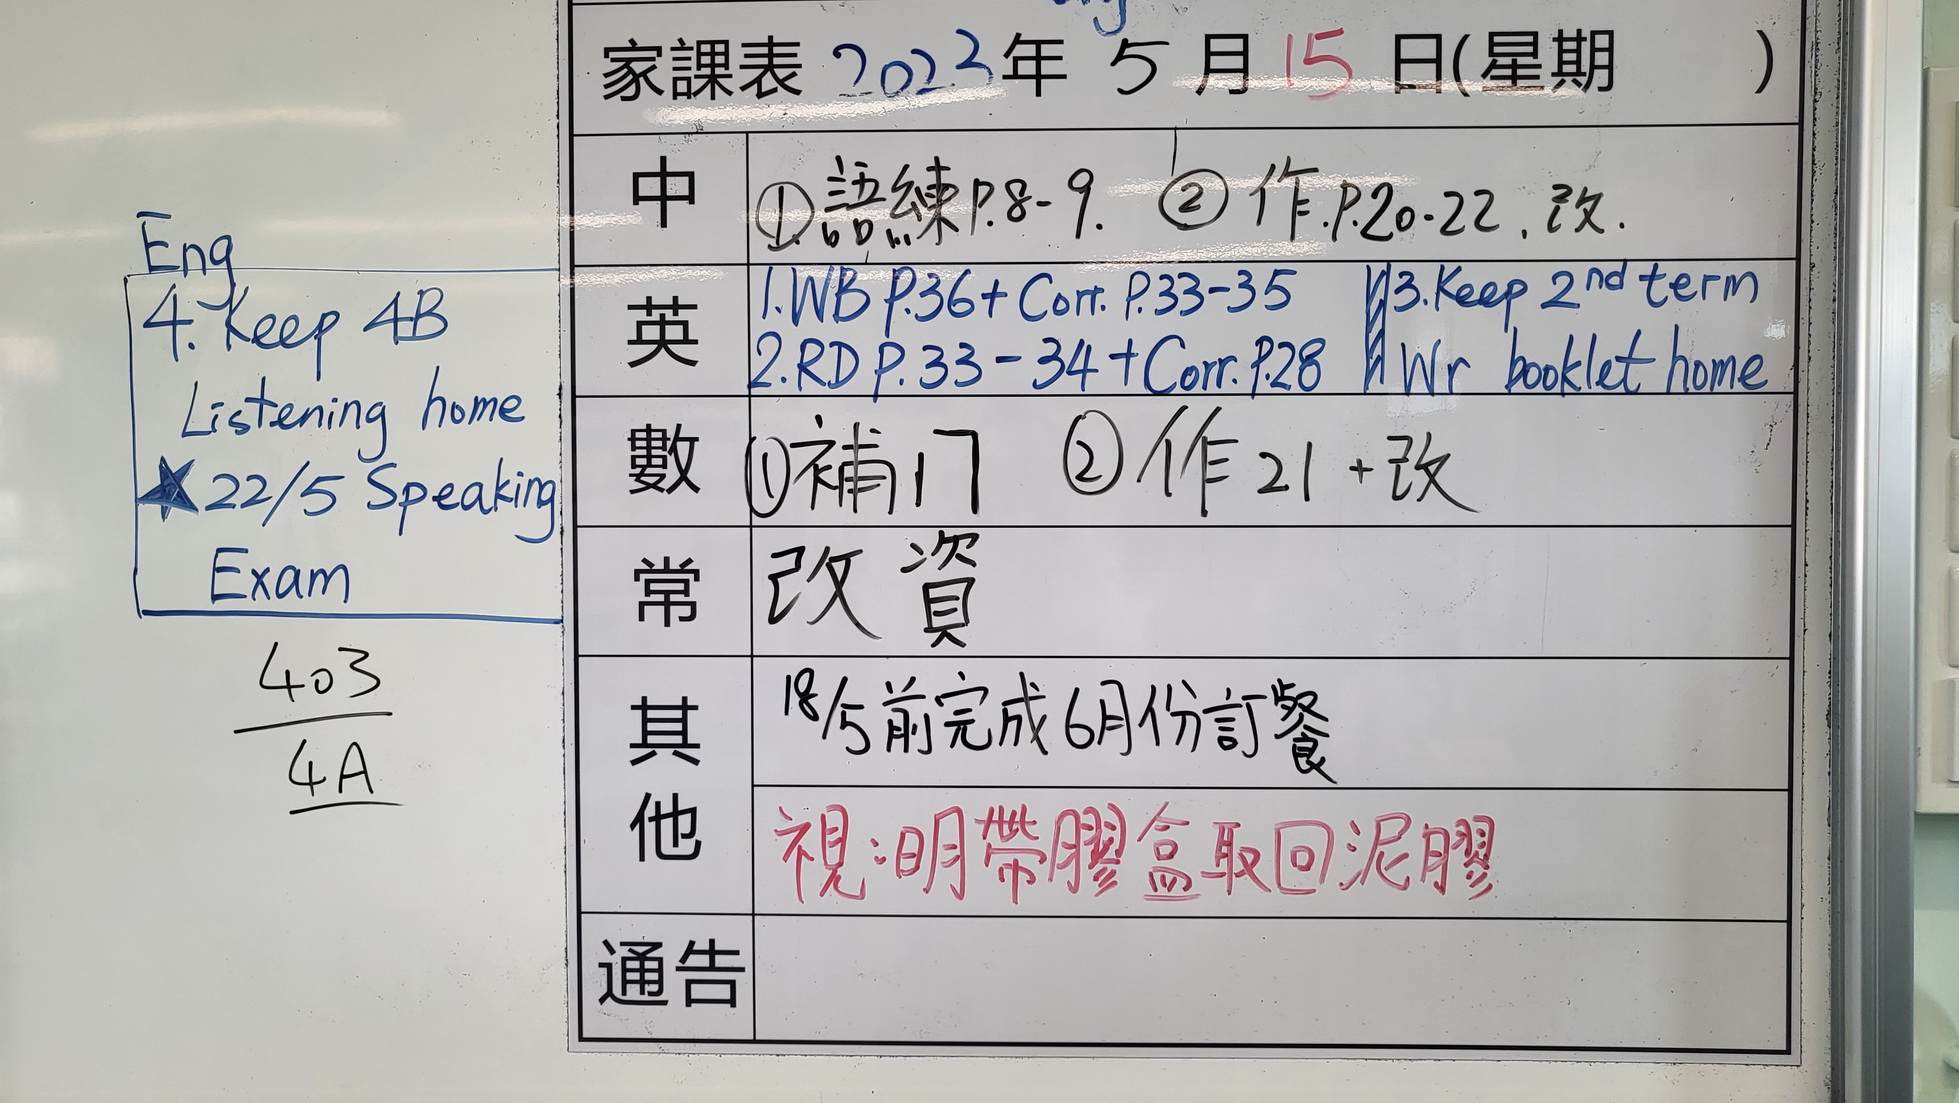 家課表 2023年 5月15日(星期 )
中 ①語練P.8-9. ②作.P.20-22.改.
英 1.WB P.36+Corr. P.33-35 3.Keep 2nd term
2.RD P.33-34+Corr.P.28 Wr booklet home
數 ①補17 ②作21+改
常 改資
其他 18/5前完成6月份訂餐
視:明帶膠盒取回泥膠
通告
Eng
4. Keep 4B
Listening home
★22/5 Speaking
Exam
403
4A